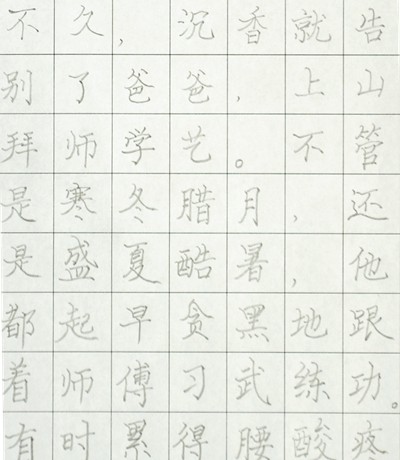 不久，沉香就告
别了爸爸，上山
拜师学艺。不管
是寒冬腊月，还
是盛夏酷暑，他
都起早贪黑地跟
着师傅习武练功。
有时累得腰酸疼